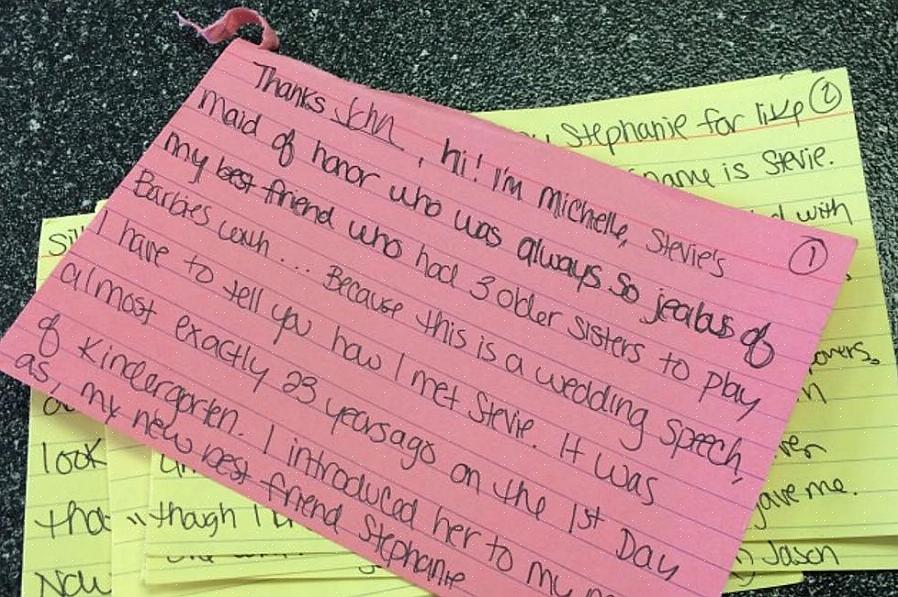 Thanks John, hi! I'm michelle, Stevie's
①
maid of honor who was always so jealous of
my best friend who had 3 older sisters to play
Barbies with ... Because this is a wedding speech,
I have to tell you how I met Stevie. It was
almost exactly 23 years ago on the 1st Day
of Kindergarten. I introduced her to my
as, my new best friend Stephanie
②
Stephanie for like
name is Stevie.
with
gave me.
Jason
look
"though I
Now